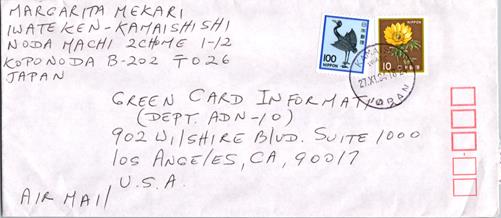 MARGARITA MEKARI
IWATE KEN-KAMAISHISHI
NODA MACHI 2CHOME 1-12
KOPONODA B-202 〒026
JAPAN
100
NIPPON
日本郵便
NIPPON
10
日本郵便
KAMAISHI
27.XI.
JAPAN
GREEN CARD INFORMATI
(DEPT. ADN-10)
902 WILSHIRE BLVD. SUITE 1000
LOS ANGELES, CA, 90017
U.S.A.
AIR MAIL